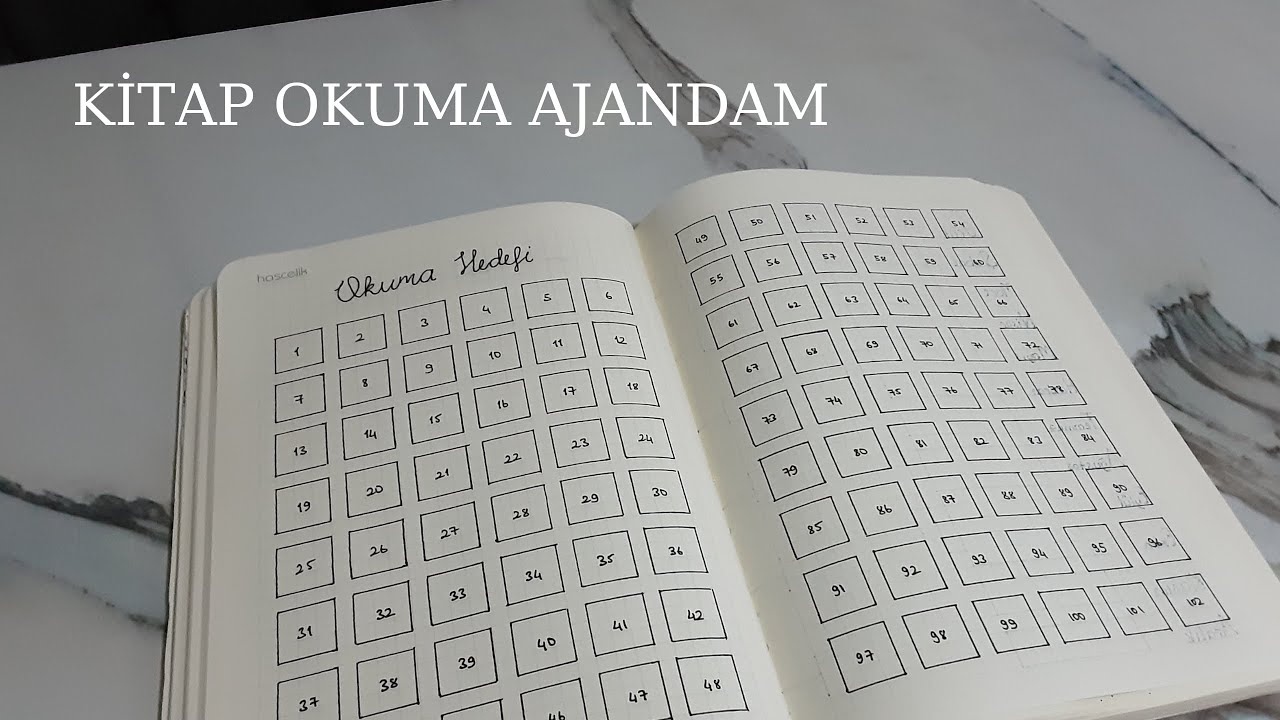 KİTAP OKUMA AJANDAM
hascelik
Okuma Hedefi
1 2 3 4 5 6
7 8 9 10 11 12
13 14 15 16 17 18
19 20 21 22 23 24
25 26 27 28 29 30
31 32 33 34 35 36
37 38 39 40 41 42
46 47 48
49 50 51 52 53 54
55 56 57 58 59 60
61 62 63 64 65 66
67 68 69 70 71 72
73 74 75 76 77 78
79 80 81 82 83 84
85 86 87 88 89 90
91 92 93 94 95 96
97 98 99 100 101 102